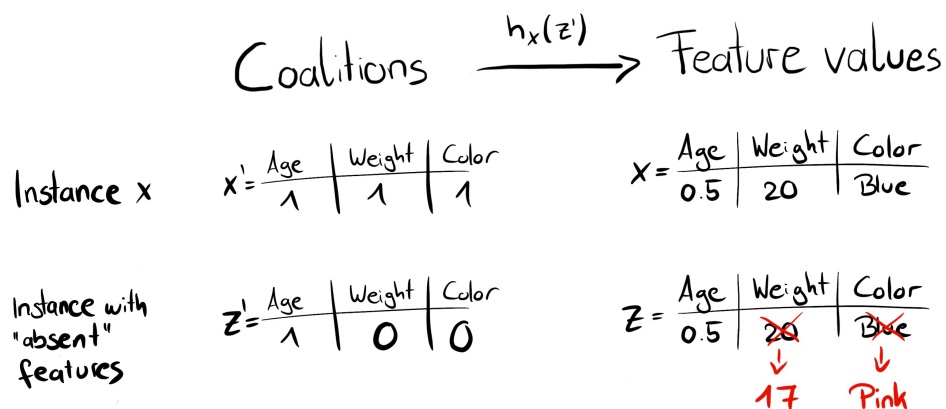 Coalitions hx(z') Feature values
Instance x
x' = Age Weight Color
1 1 1
x = Age Weight Color
0.5 20 Blue
Instance with
"absent"
features
z' = Age Weight Color
1 0 0
z = Age Weight Color
0.5 20 Blue
17 Pink